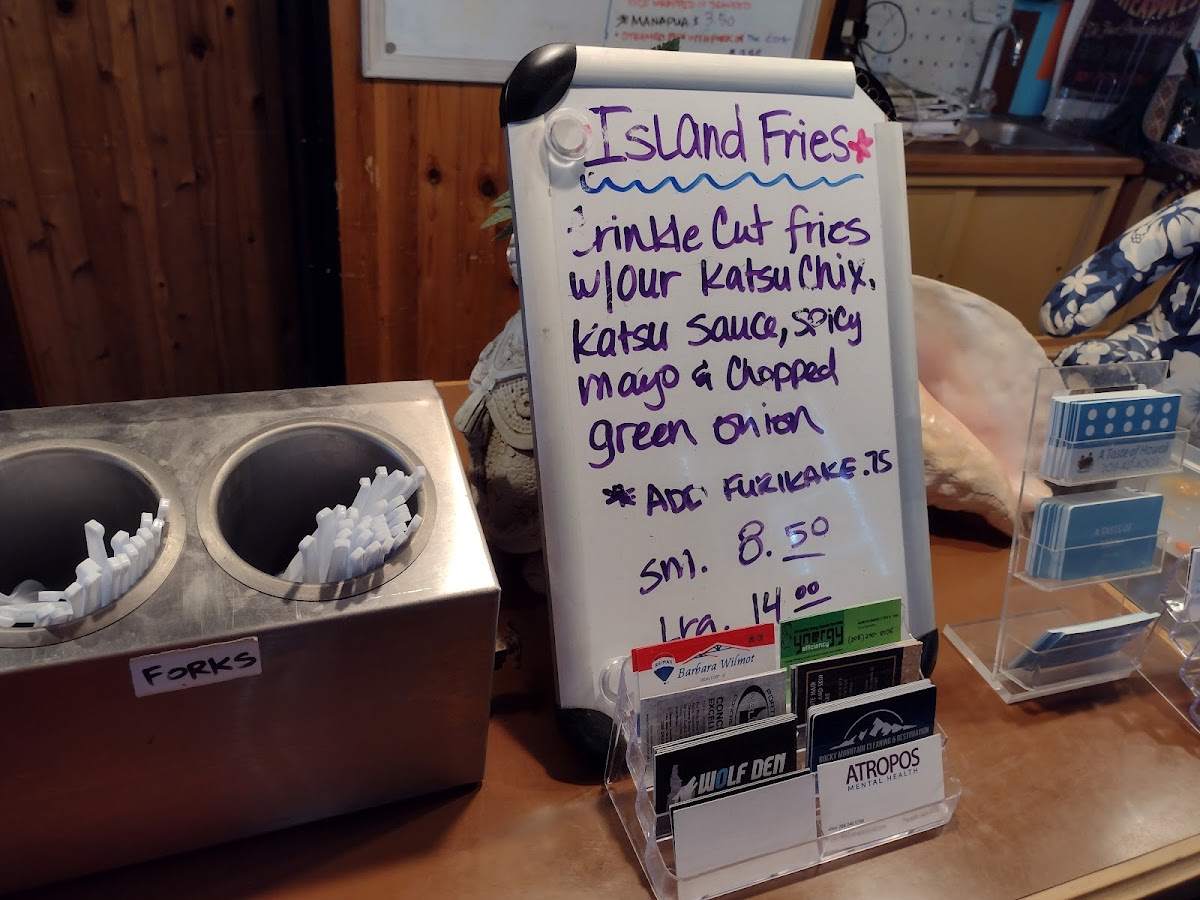 *MANAPUA $ 3.50
Island Fries
Crinkle Cut fries
w/our Katsu Chix,
Katsu Sauce, Spicy
mayo & Chopped
green onion
* ADD FURIKAKE .75
sml. 8.50
Lrg. 14.00
FORKS
Barbara Wilmot
ynergy
efficiency
WOLF DEN
ROCKY MOUNTAIN CLEANING & RESTORATION
ATROPOS
MENTAL HEALTH
A Taste of Hawaii
A TASTE OF